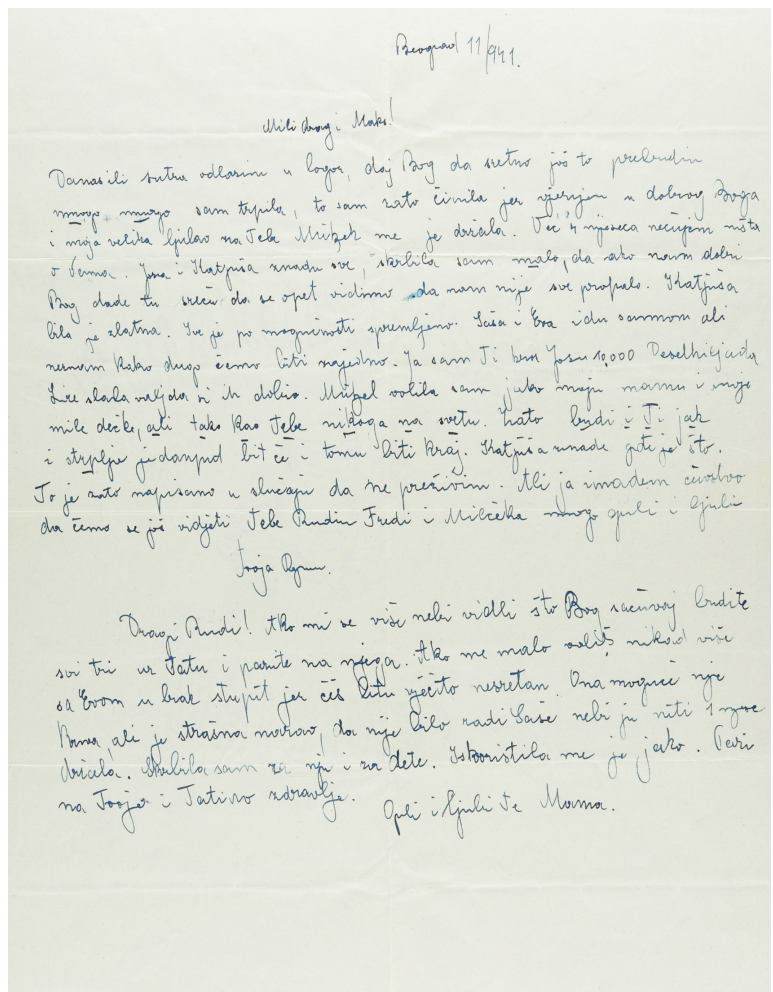 Beograd 11/941.
Mili dragi Maks!
Danas ili sutra odlazim u logor, daj Bog da sretno još to prebudin
mnogo mnogo sam trpila, to sam zato činila jer vjerujem u dobrog Boga
i moja velika ljubav na Tebe me je držala. Već 4 mjeseca nečujem ništa
o Vama. i Katjuša znadu sve, skrbila sam malo, da ako nam dobri
Bog dade tu sreću da se opet vidimo da nam nije sve propalo. Katjuša
bila je zlatna. Sve je po mogućnosti spremljeno. Saša i Eva idu samnom ali
neznam kako dugo ćemo biti zajedno. Ja sam Ti kroz 10,000
Lire slala valjda si ih dobio. volila sam jako moju mamu i moje
mile dečke, ali tako kao Tebe nikoga na svetu. Zato budi i Ti jak
i strplje jedanput bit če i tomu biti kraj. Katjuša znade gdi je što.
To je zato napisano u slučaju da ne preživim. Ali ja imadem čuvstvo
da ćemo se još vidjeti Tebe Rudiu Fredi i Milčeka mnogo grli i ljubi
Tvoja
Dragi Rudi! Ako mi se više nebi vidli što Bog sačuvaj budite
svi tri uz Tatu i pazite na njega. Ako me malo voliš nikad više
sa Evom u brak stupit jer ćeš bitu vječito nesretan. Ona moguće nije
, ali je strašna narav, da nije bilo radi Saše nebi ju niti 1
držala. Skrbila sam za nju i za dete. Iskoristila me je jako. Pazi
na Tvoje i Tatino zdravlje.
Grli i ljubi Te Mama.